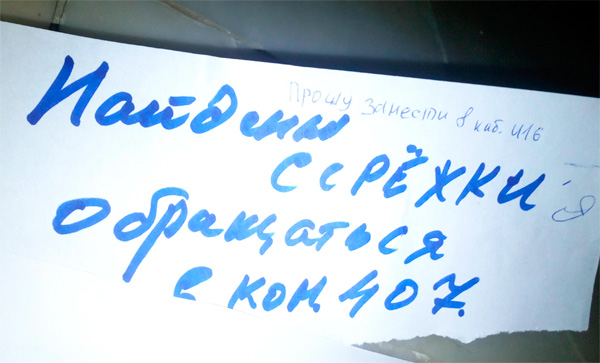 Прошу занести в каб. 416
Найдены
СЕРЁЖКИ
Обращаться
в ком. 407.